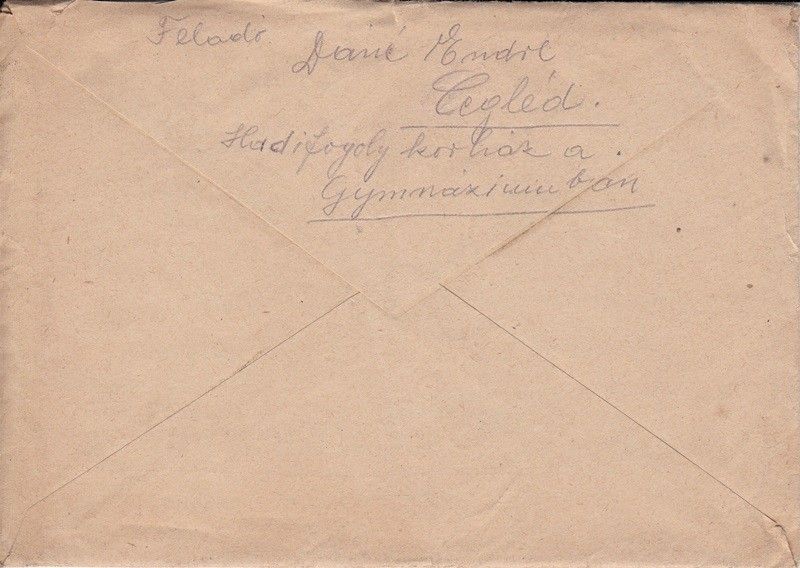 Feladó
Danié Endre
Cegléd.
Hadifogoly korház a
Gymnáziumban